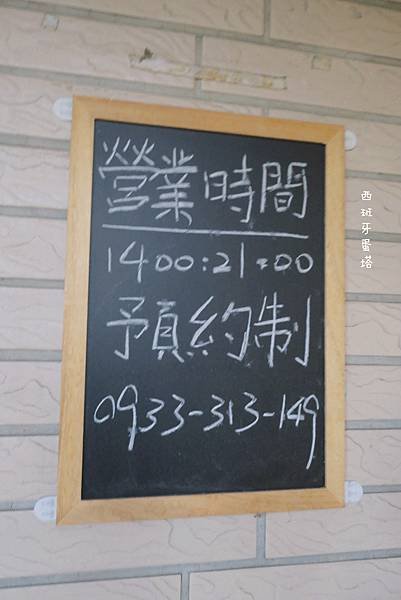 營業時間
1400:21:00
預約制
0933-313-149
西班牙蛋塔